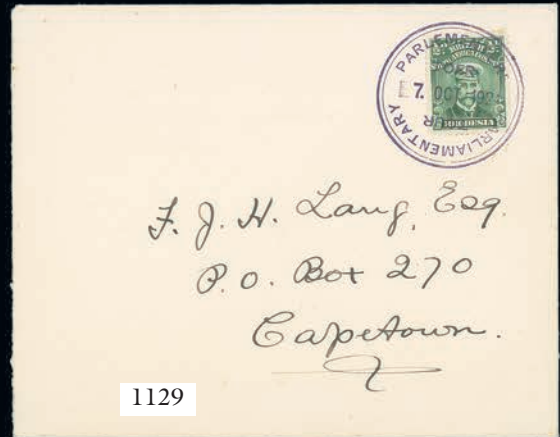 PARLEMENTAIR
7. OCT 192
PARLIAMENTARY
RHODESIA
F. J. H. Lang, Esq.
P. O. Box 270
Capetown.
1129